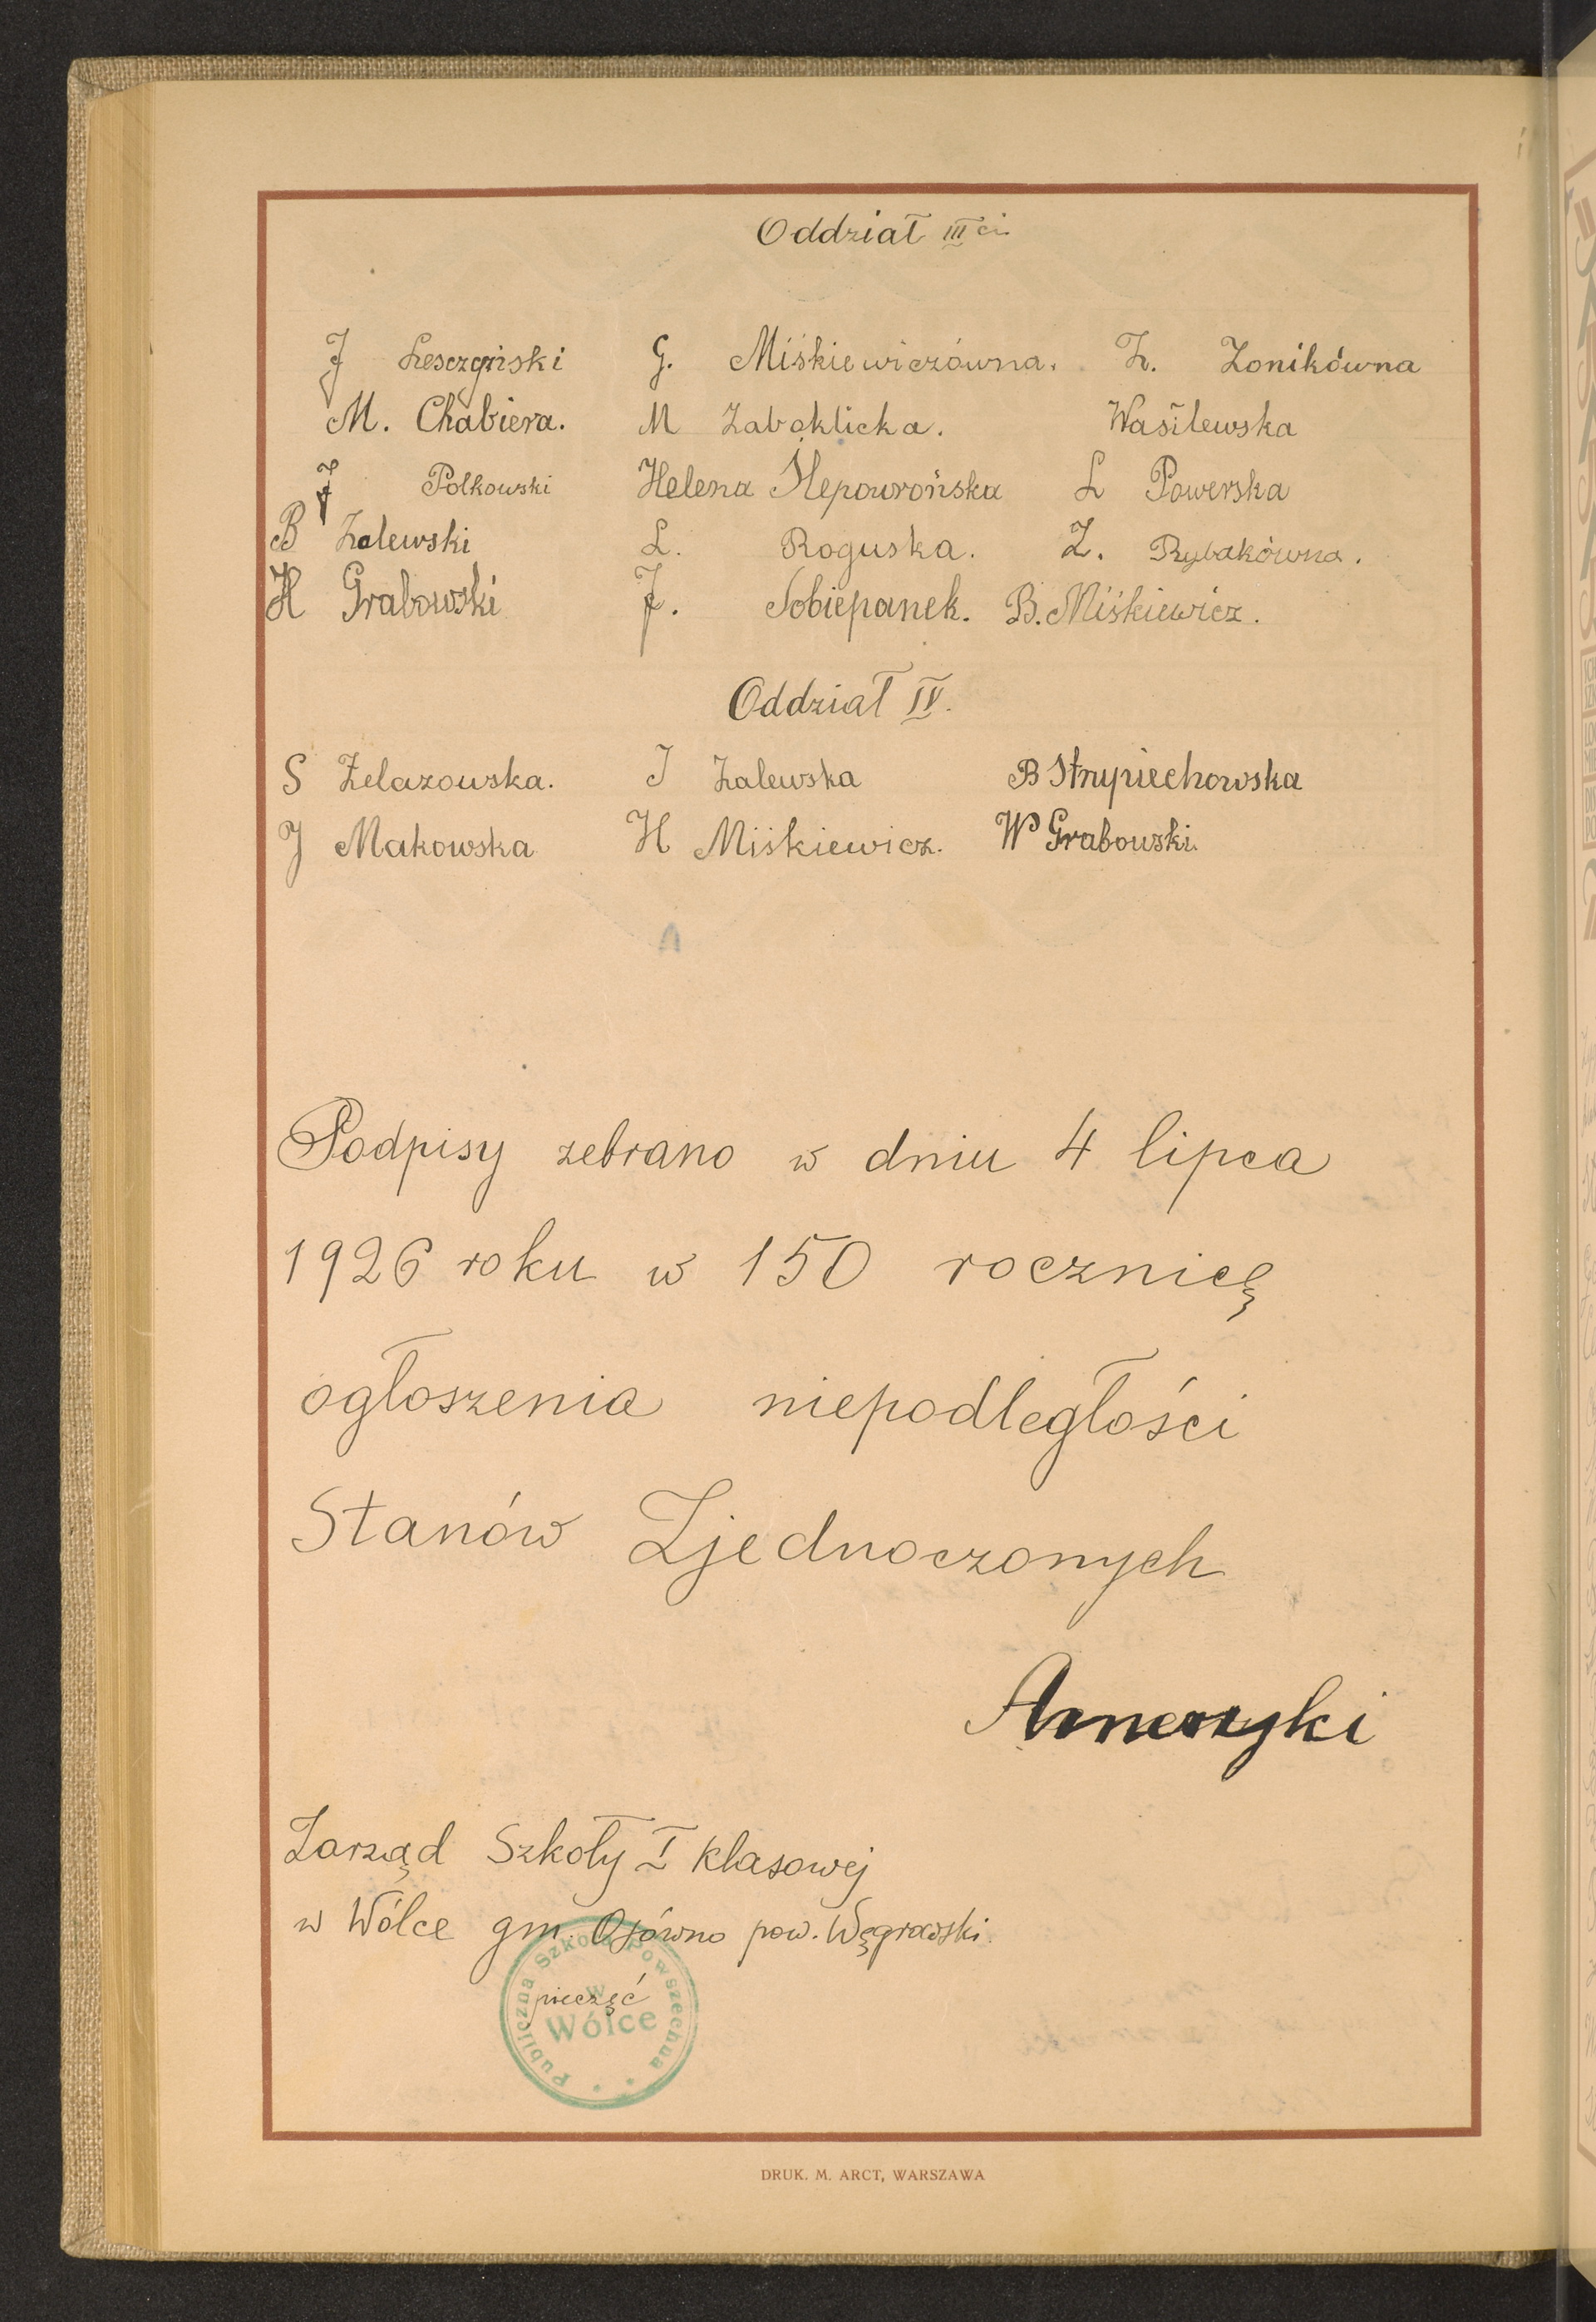 Oddział III ci
J Lesczyński G. Miśkiewiczówna. Z. Zonikówna
M. Chabiera. M Zaboklicka. Wasilewska
J Polkowski Helena Ślepowrońska L Powerska
B Zalewski L. Roguska. Z. Rybakówna.
H Grabowski J. Sobiepanek. B. Miśkiewicz.
Oddział IV.
S Żelazowska. J Zalewska B Strupiechowska
J Makowska H Miśkiewicz. W Grabowski.
Podpisy zebrano w dniu 4 lipca
1926 roku w 150 rocznicę
ogłoszenia niepodległości
Stanów Zjednoczonych
Ameryki
Zarząd Szkoły I klasowej
w Wólce gm. Osówno pow. Węgrowski.
pieczęć
Publiczna Szkoła Powszechna
w
Wólce
DRUK. M. ARCT, WARSZAWA